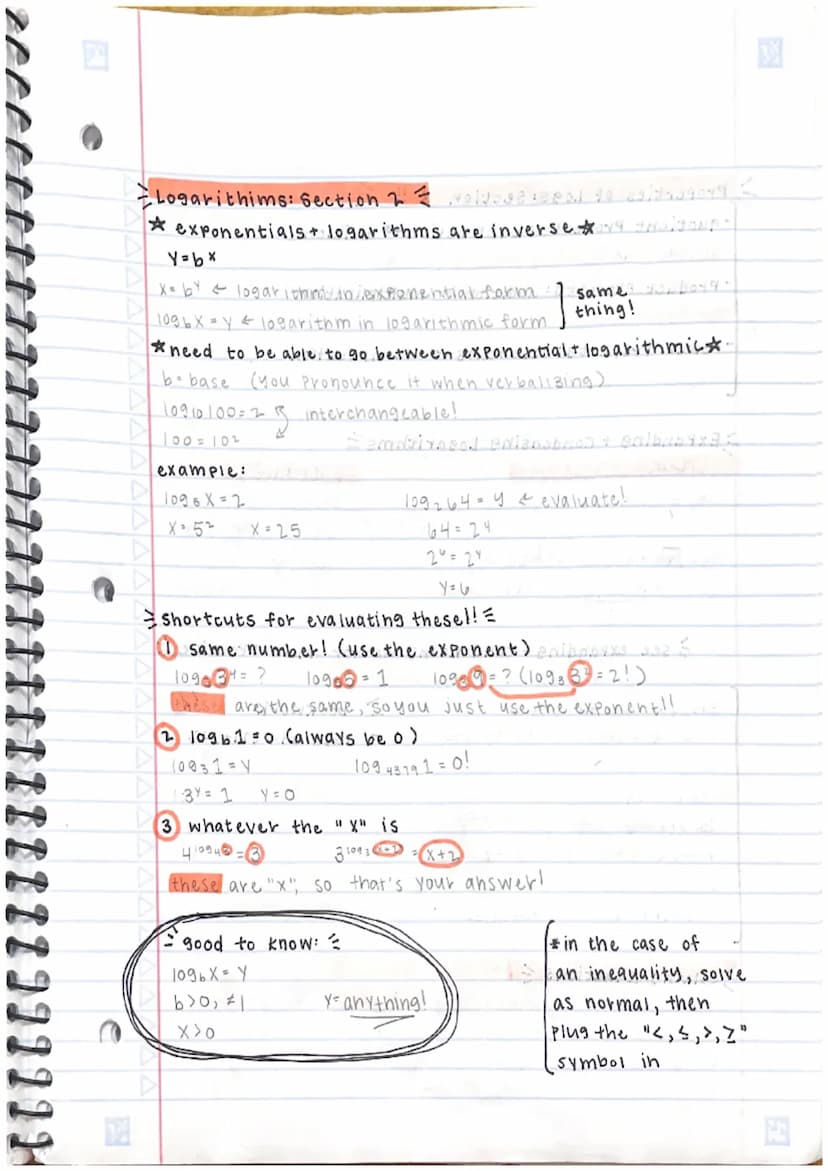 Logarithims: Section 2
★ exponentials + logarithms are inverse ★
Y=bˣ
x=bʸ ← logarithm in exponential form
log_b x = y ← logarithm in logarithmic form
same thing!
★need to be able to go between exponential + logarithmic★
b=base (you pronounce it when verbalizing)
log₁₀100=2
interchangeable!
100=10²
example:
log₅x=2
x=5² x=25
log₂64=y ← evaluate!
64=2ʸ
2⁶=2ʸ
y=6
shortcuts for evaluating these!!
① same number! (use the exponent)
log₃3⁴=? log₅5=1 log₃9=? (log₃3²=2!)
these are the same, so you just use the exponent!!
② log_b 1=0 (always be 0)
log₃1=y log₄₃₇₉1=0!
3ʸ=1 y=0
③ whatever the "x" is
4^log₄3=3 3^log₃(x+2)=x+2
these are "x", so that's your answer!
good to know:
log_b x=y
b>0, ≠1 y=anything!
x>0
*in the case of
an inequality, solve
as normal, then
plug the "<,≤,>,≥"
symbol in